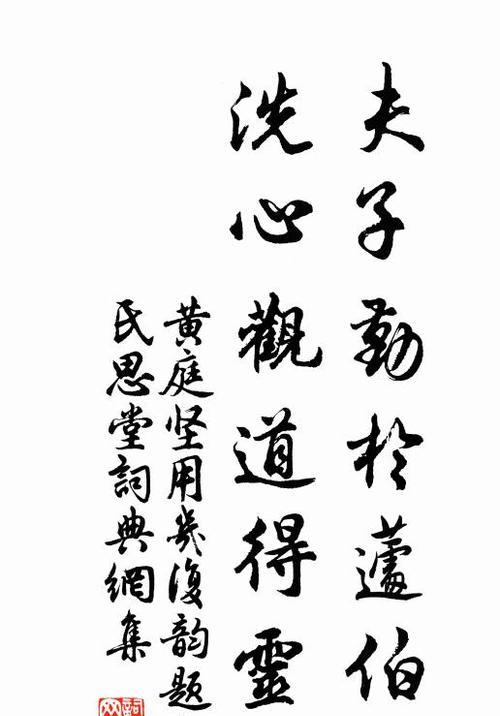 夫子勤於蘧伯
洗心觀道得靈
黄庭坚用幾復韵题
氏思堂詞典網集